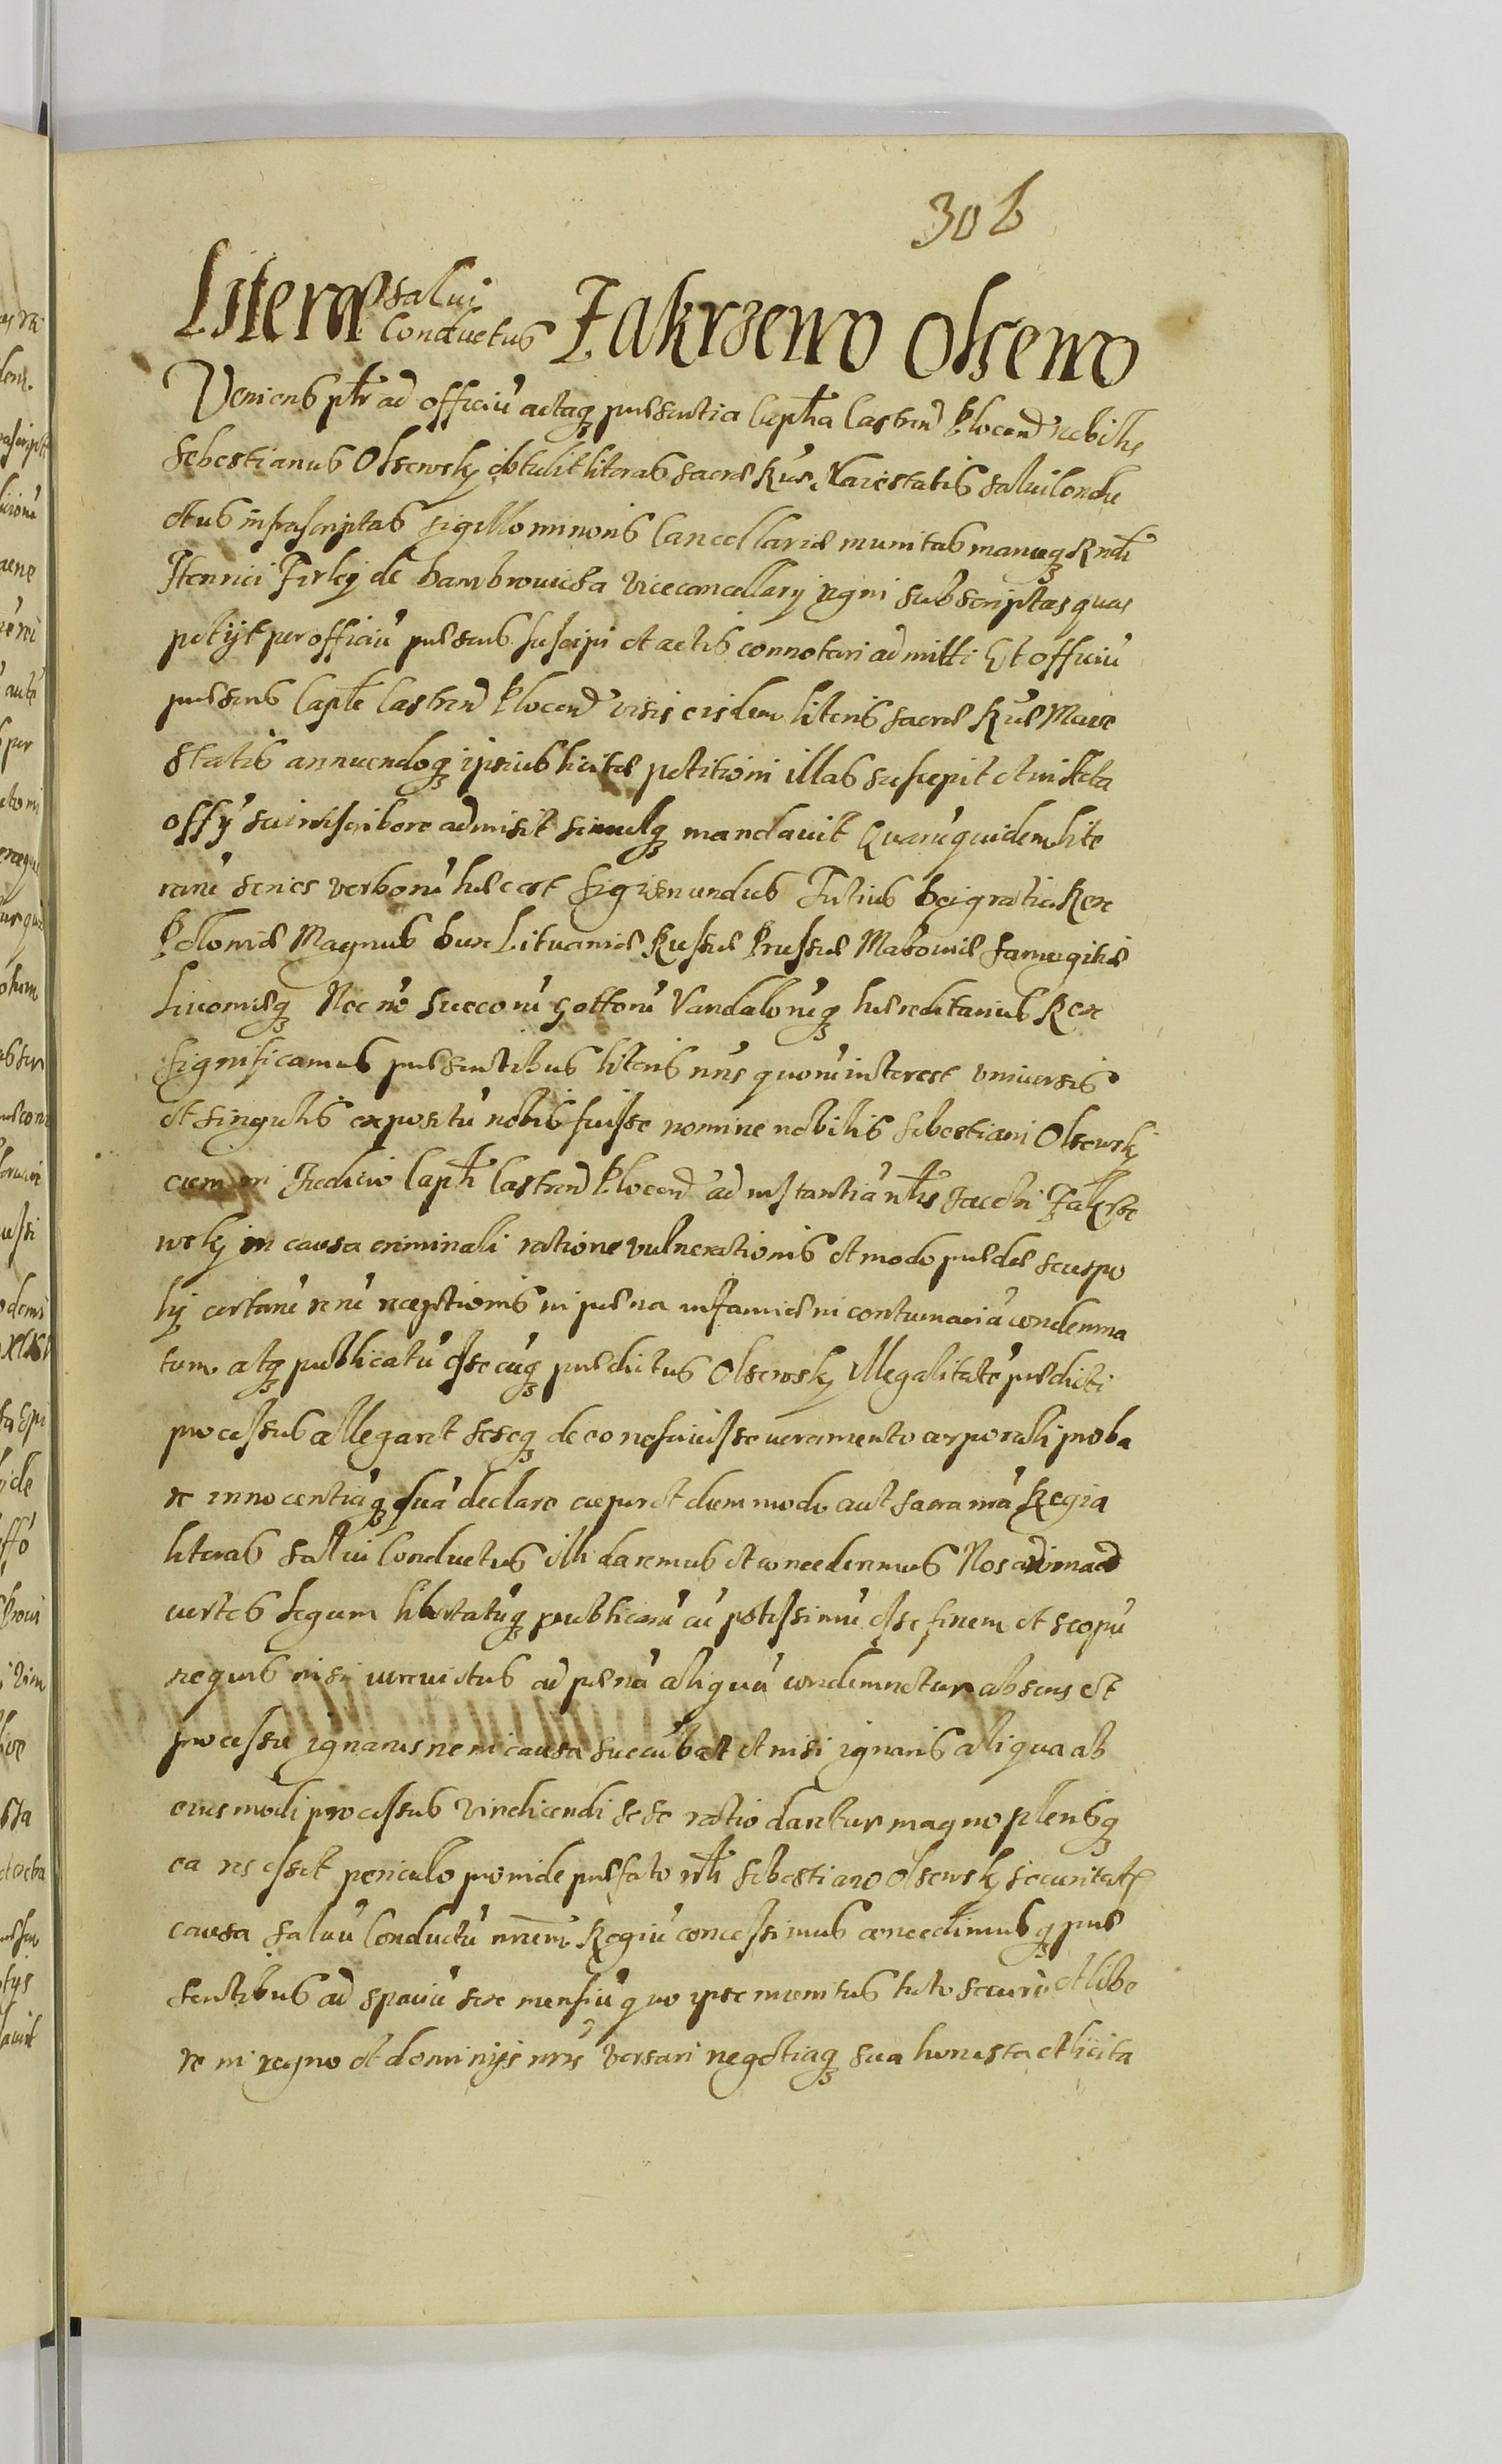 306
Literæ Salvi Conductus Zakrzewo Olsewo
Veniens pltr ad officiu actaq præsentia Captlia Castren Plocen nobilis
Sebestianus Olsewsky obtulit literas Sacræ Ræ Maiestatis salvi Condu
ctus infrascriptas sigillo minoris Cancellariæ munitas manuq Rndi
Henrici Firley de Dambrowicza Vicecancellarij regni subscriptas quas
petijt per officiu præsens suscipi et actis connotari admitti Et officiu
præsens Captle Castren Plocen visis eisdem literis Sacræ Ræ Maie
statis annuendoq ipsius licitæ petitioni illas suscepit et in acta
offy sui inscribere admisit simulq mandavit Quaru quidem lite
raru series verboru hæc est Sigismundus Tertius Dei gratia Rex
Poloniæ Magnus Dux Lituaniæ Russiæ Prussiæ Masoviæ Samogitiæ
Livoniæq Nec no Suecoru Gottoru Vandaloruq hæreditarius Rex
Significamus præsentibus literis nris quoru interest universis
et singulis expositu nobis fuisse nomine nobilis Sebestiani Olsewsky
eum in Judicio Captli Castren Plocen ad instantia nlis Jacobi Zakrze
wsky in causa criminali ratione vulnerationis et modo prædæ seu spo
lij certaru reru receptionis in pæna infamiæ in contumacia condemna
tum atq publicatu esse cuq prædictus Olsewsky illegalitate prædicti
processus allegaret seseq de eo nescivisse iuramento corporali proba
re innocentiaq sua declare cuperet dummodo aut sacra nra Regia
literas salvi Conductus illi daremus et concederemus Nos animad
vertes legum libertatuq publicaru cu potissimu esse finem et scopu
ne quis nisi iure victus ad pæna aliqua condemnetur absens et
processu ignarus ne in causa succubat et nisi ignaris aliqua ab
eiusmodi processus vindicandi sese ratio daretur magno plenusq
ea res esset periculo proinde præfato nli Sebestiano Olsewsky securitatis
causa salvu Conductu nrum Regiu concessimus concedimusq præ
sentibus ad spaciu sex mensiu quo ipse munitus tuto secure et libe
re in regno et dominijs nris versari negotiaq sua honesta et licita